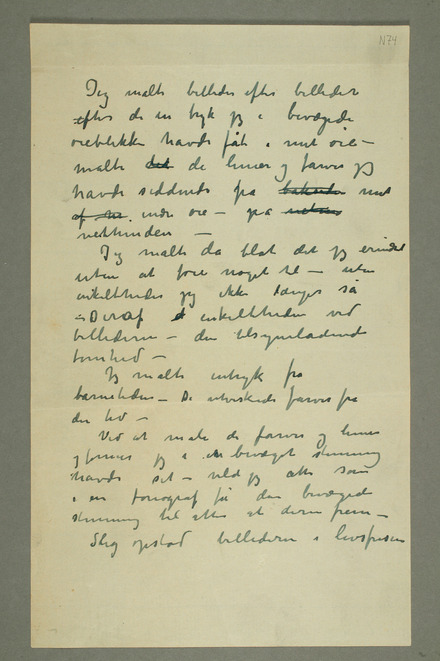 N74
Jeg malte billeder efter billeder
efter de intryk jeg i bevægede
øieblikke havde fåt i mit øie –
malte de linier og farver jeg
havde siddende på mit
indre øie – på
netthinden –
Jeg malte da blot det jeg erindret
uten at føie noget til – uten
enkeltheder jeg ikke længer så
– Deraf enkeltheden ved
billederne – den tilsyneladende
tomhed –
Jeg malte intryk fra
barnetiden – De utviskede farver fra
den tid –
Ved at male de farver og linier
og former jeg i en bevæget stemning
havde set – vild jeg atter som
i en fonograf få den bevægede
stemning til atter at dirre frem –
Slig opstod billederne i livsfrisen